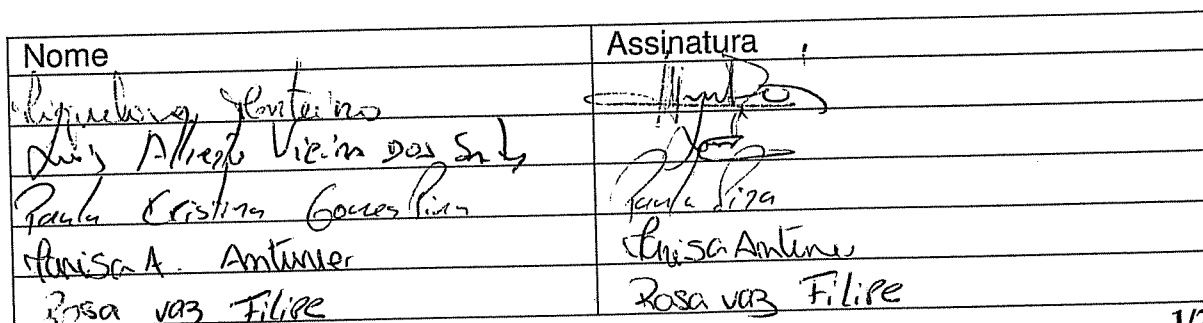 Nome Assinatura
Monteiro
Luis Alfredo Vieira Dos Santos
Paula Cristina Gomes Pina Paula Pina
A. Antunes Antunes
Rosa vaz Filipe Rosa vaz Filipe
1/